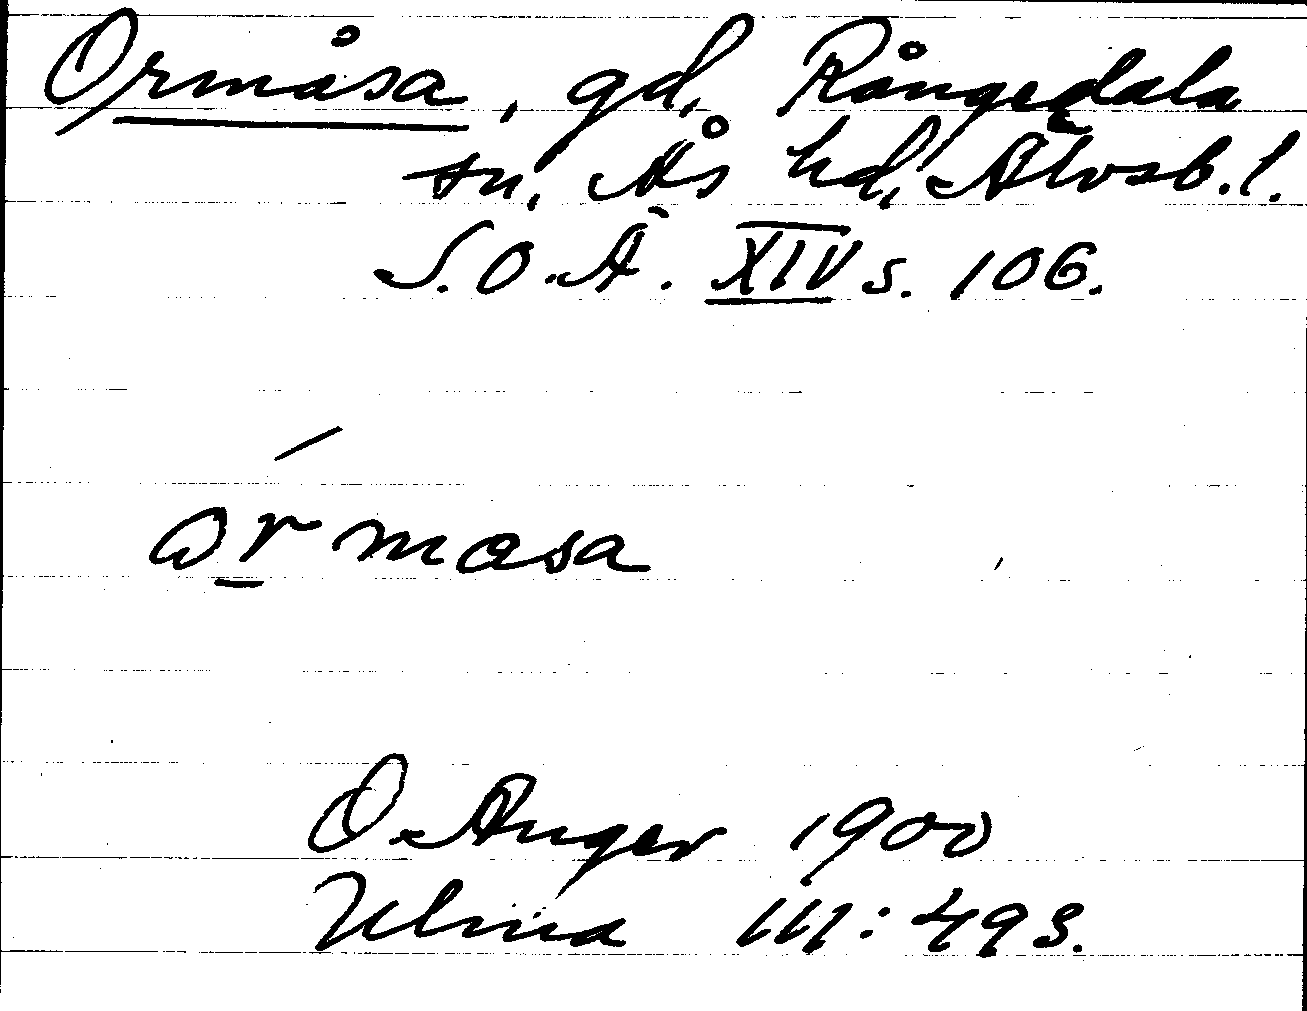 Ormåsa, gd, Rångedala
sn, Ås hd, Älvsb. l.
S.O.Ä. XIV s. 106.
ormasa
O. Anger 1900
Ulma 111:493.